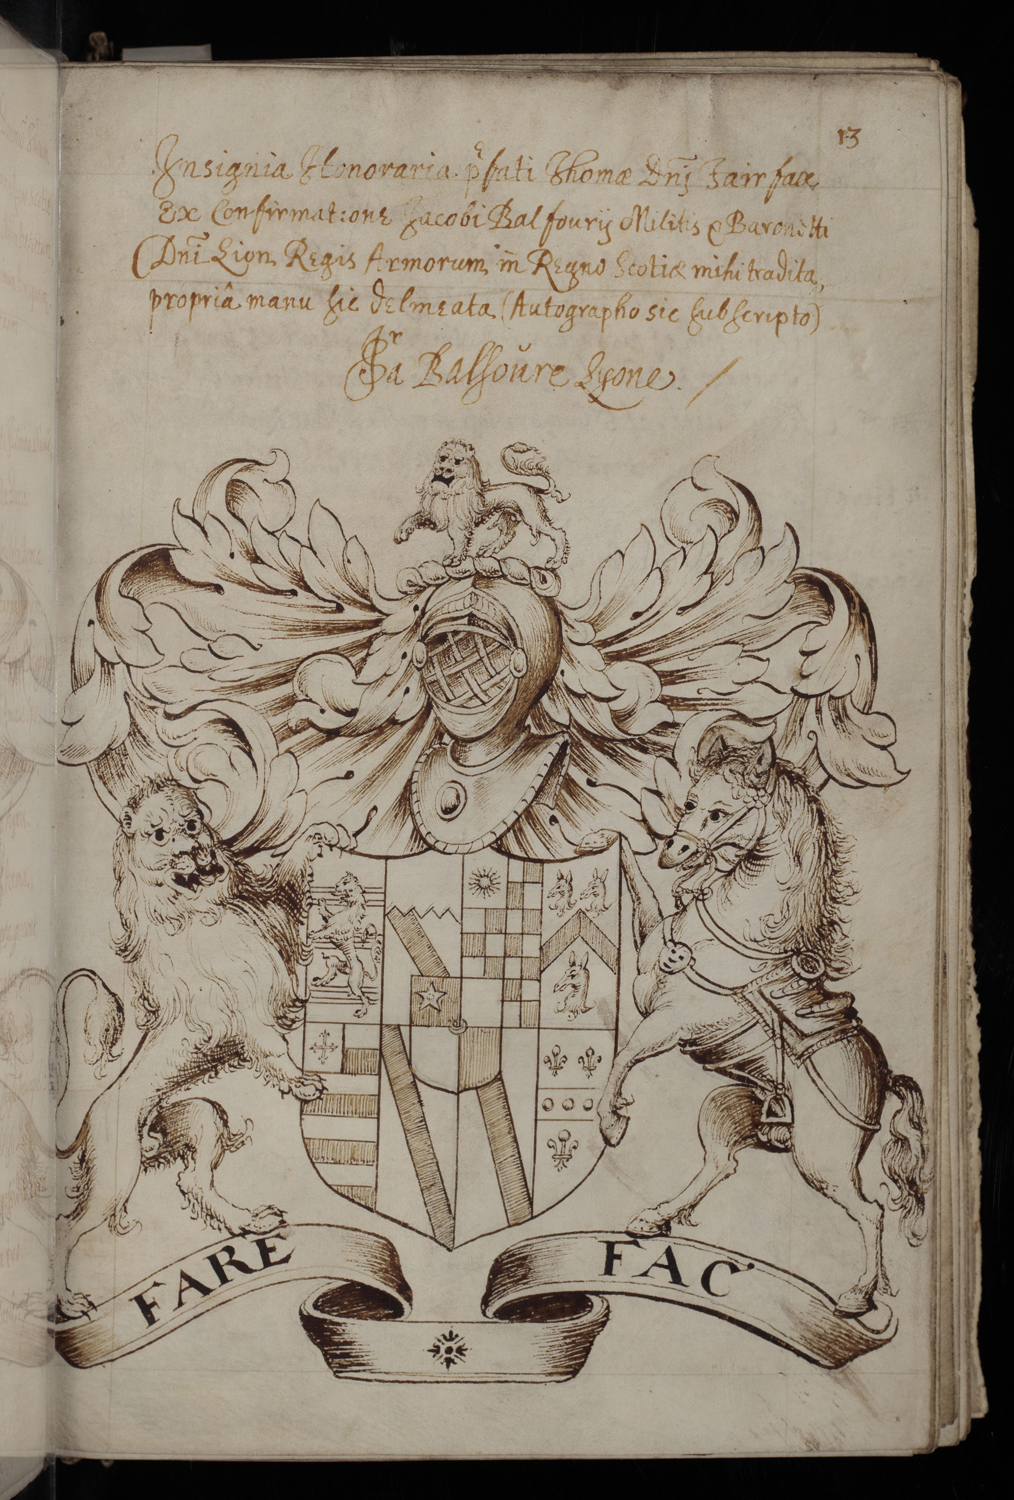 13
Insignia Honoraria p̄fati Thomæ Dn̄j Fairfax,
Ex Confirmatione Jacobi Balfourij Militis & Baronetti
(Dn̄i Lion Regis Armorum in Regno Scotiæ mihi tradita,
propriâ manu hic delineata (Autographo sic subscripto)
Sr Ja Balfoure Lyone.
FARE FAC